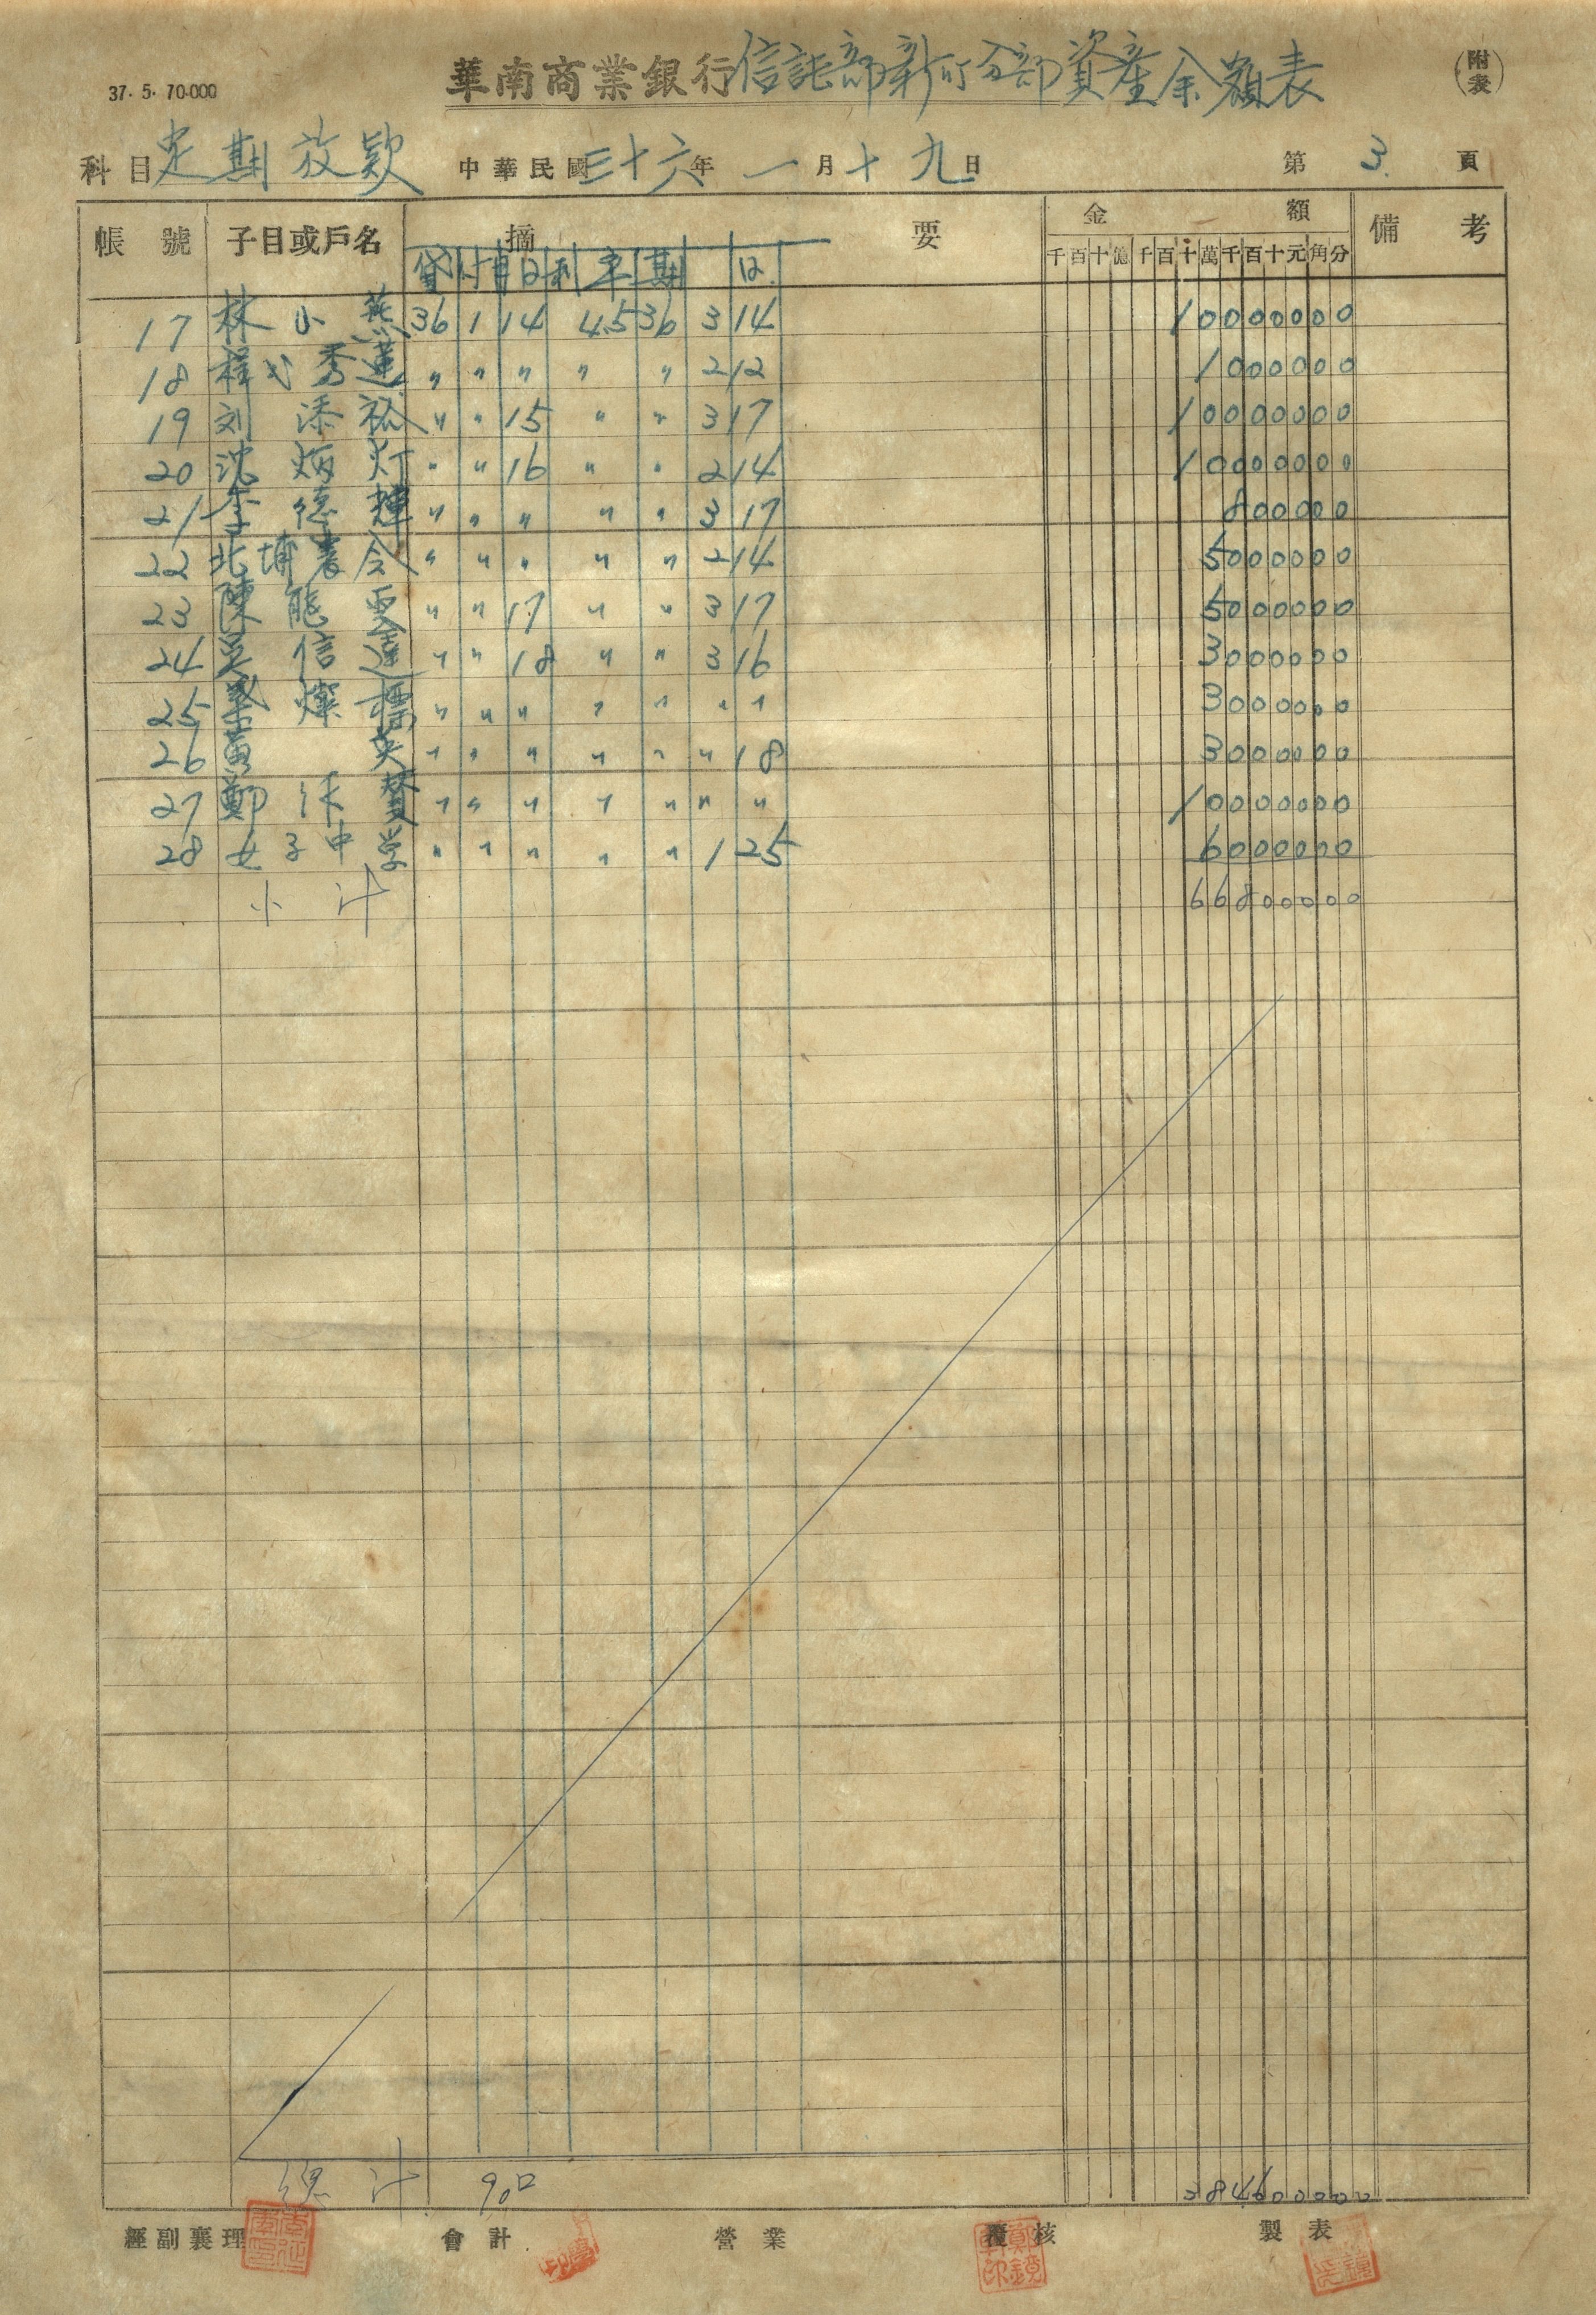 37. 5. 70.000
華南商業銀行信託部新町分部資產余額表
(附表)
科目 定期放款 中華民國三十六年一月十九日 第3頁
帳號 子目或戶名 摘要 金額 備考
貸付月日 利率 期日 千百十億千百十萬千百十元角分
17 林小燕 36 1 14 4.5 36 3 14 10000000
18 程氏秀蓮 〃 〃 〃 〃 〃 2 12 1000000
19 刘添裕 〃 〃 15 〃 〃 3 17 10000000
20 沈炳灯 〃 〃 16 〃 〃 2 14 10000000
21 李德輝 〃 〃 〃 〃 〃 3 17 800000
22 北埔農会 〃 〃 〃 〃 〃 2 14 5000000
23 陳能 〃 〃 17 〃 〃 3 17 5000000
24 吳信達 〃 〃 18 〃 〃 3 16 3000000
25 葉燦標 〃 〃 〃 〃 〃 〃 〃 3000000
26 黃英 〃 〃 〃 〃 〃 〃 18 3000000
27 鄭贊 〃 〃 〃 〃 〃 〃 〃 10000000
28 女子中学 〃 〃 〃 〃 〃 1 25 6000000
小計 66800000
總計 90口 284600000
經副襄理 會計 營業 覆核 製表